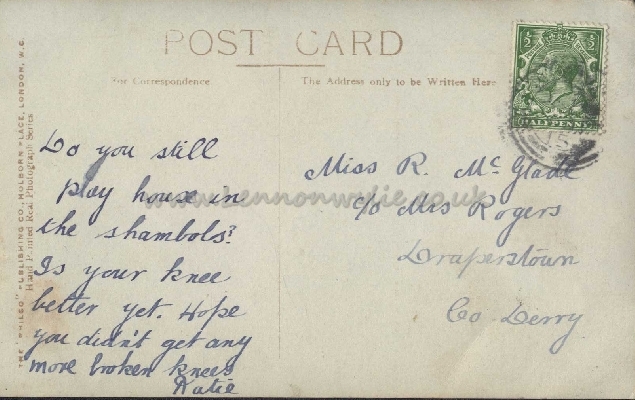 POST CARD
For Correspondence
The Address only to be Written Here
½ ½
HALFPENNY
THE "PHILCO" PUBLISHING CO., HOLBORN PLACE, LONDON, W.C.
Hand Painted Real Photograph Series
Do you still
play house in
the shambols?
Is your knee
better yet. Hope
you didn't get any
more broken knees
Katie
Miss R. McGlade
c/o Mrs Rogers
Draperstown
Co Derry